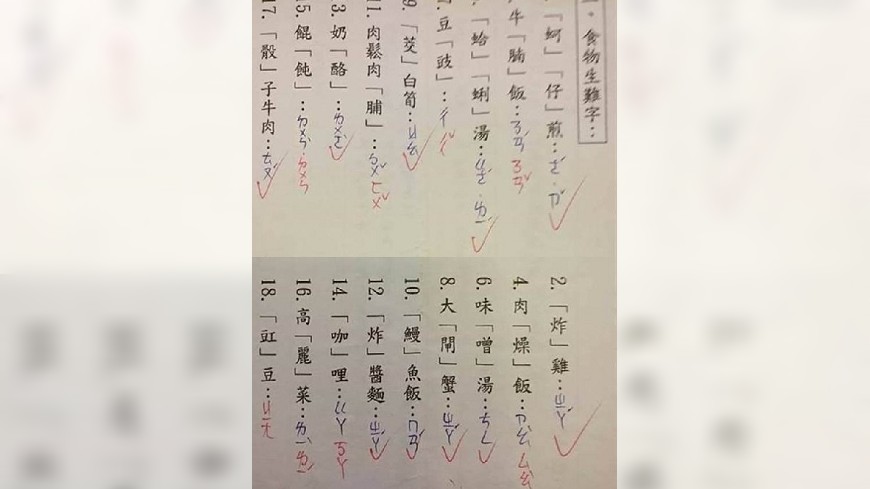 食物生難字：
「蚵」「仔」煎：
牛「腩」飯：ㄋㄢˊ ㄋㄢˇ
「蛤」「蜊」湯：
豆「豉」：ㄔˇ
9.「茭」白筍：ㄐㄠ
11. 肉鬆肉「脯」：ㄆㄨˇ ㄈㄨˇ
3. 奶「酪」：ㄌㄨㄛˋ
15. 餛「飩」：ㄉㄨㄣˋ ˙ㄉㄨㄣ
17.「骰」子牛肉：
2.「炸」雞：ㄓㄚˊ
4. 肉「燥」飯：ㄗㄠˋ ㄙㄠˋ
6. 味「噌」湯：ㄘㄥ
8. 大「閘」蟹：ㄓㄚˊ
10.「鰻」魚飯：ㄇㄢˊ
12.「炸」醬麵：ㄓㄚˊ
14.「咖」哩：ㄍㄚ ㄎㄚ
16. 高「麗」菜：ㄌㄧˋ ㄌㄧˊ
18.「豇」豆：ㄐㄧㄤ